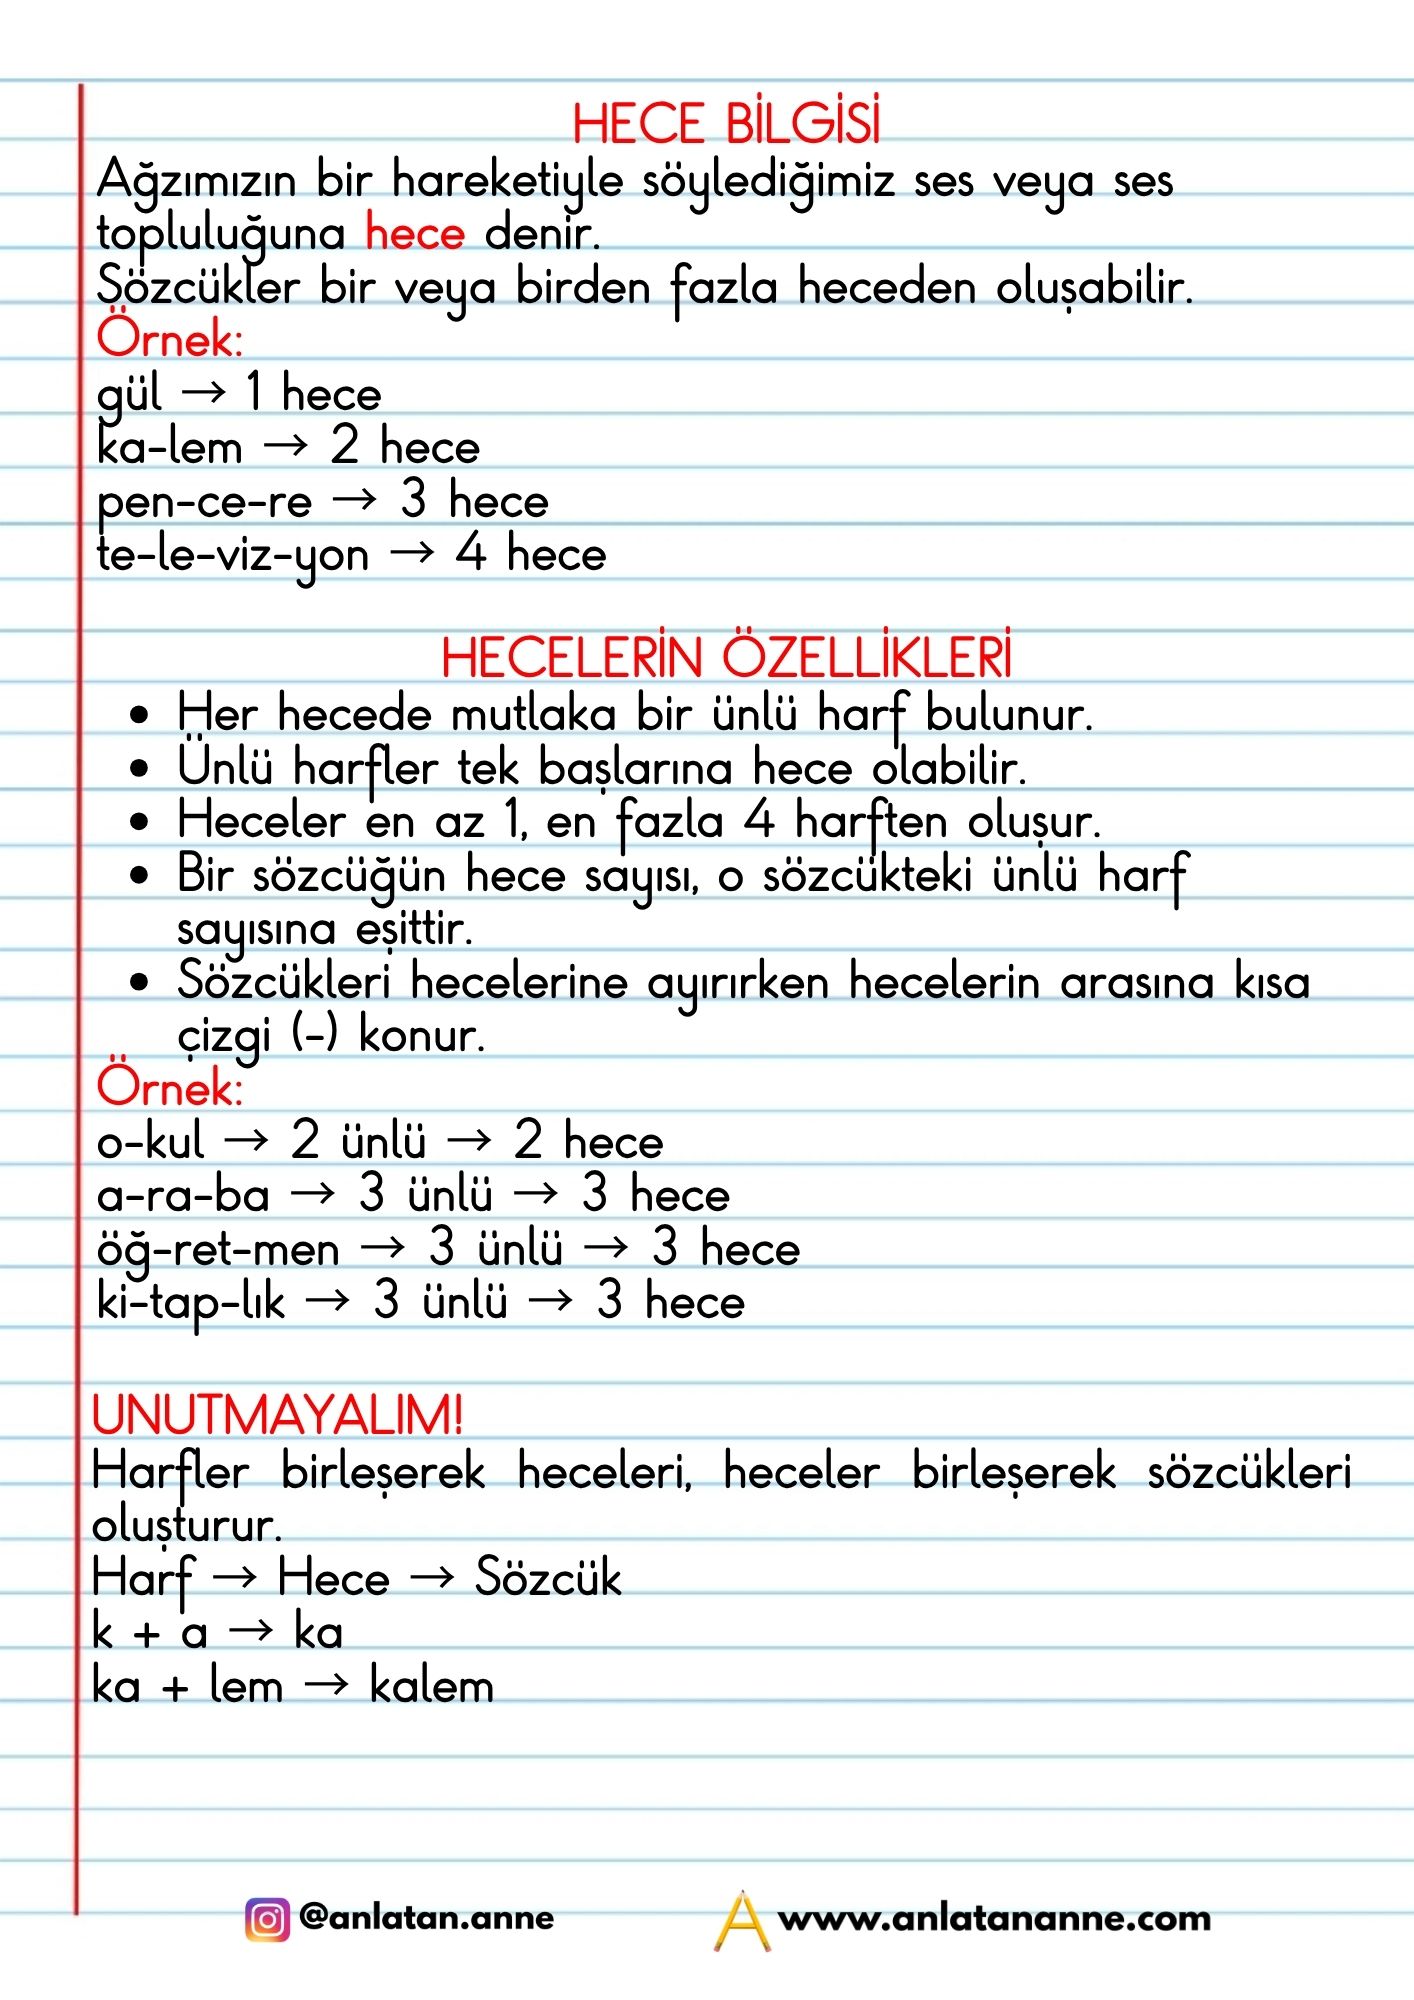 HECE BİLGİSİ
Ağzımızın bir hareketiyle söylediğimiz ses veya ses
topluluğuna hece denir.
Sözcükler bir veya birden fazla heceden oluşabilir.
Örnek:
gül → 1 hece
ka-lem → 2 hece
pen-ce-re → 3 hece
te-le-viz-yon → 4 hece
HECELERİN ÖZELLİKLERİ
• Her hecede mutlaka bir ünlü harf bulunur.
• Ünlü harfler tek başlarına hece olabilir.
• Heceler en az 1, en fazla 4 harften oluşur.
• Bir sözcüğün hece sayısı, o sözcükteki ünlü harf
sayısına eşittir.
• Sözcükleri hecelerine ayırırken hecelerin arasına kısa
çizgi (-) konur.
Örnek:
o-kul → 2 ünlü → 2 hece
a-ra-ba → 3 ünlü → 3 hece
öğ-ret-men → 3 ünlü → 3 hece
ki-tap-lık → 3 ünlü → 3 hece
UNUTMAYALIM!
Harfler birleşerek heceleri, heceler birleşerek sözcükleri
oluşturur.
Harf → Hece → Sözcük
k + a → ka
ka + lem → kalem
@anlatan.anne www.anlatananne.com